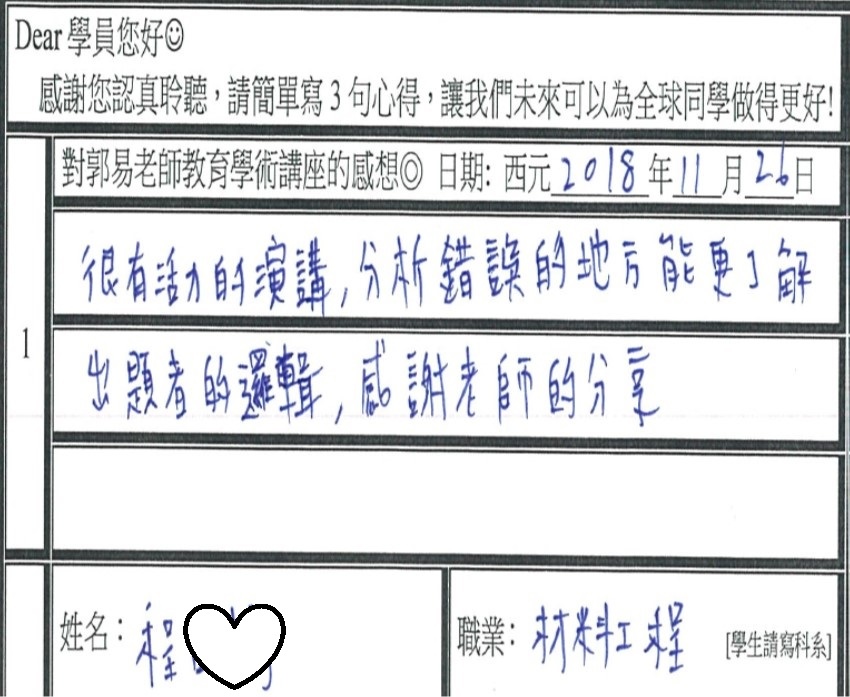 Dear 學員您好☺
感謝您認真聆聽，請簡單寫3句心得，讓我們未來可以為全球同學做得更好!
對郭易老師教育學術講座的感想◎ 日期: 西元2018年11月26日
1
很有活力的演講,分析錯誤的地方能更了解
出題者的邏輯,感謝老師的分享
姓名：程
職業：材料工程 [學生請寫科系]